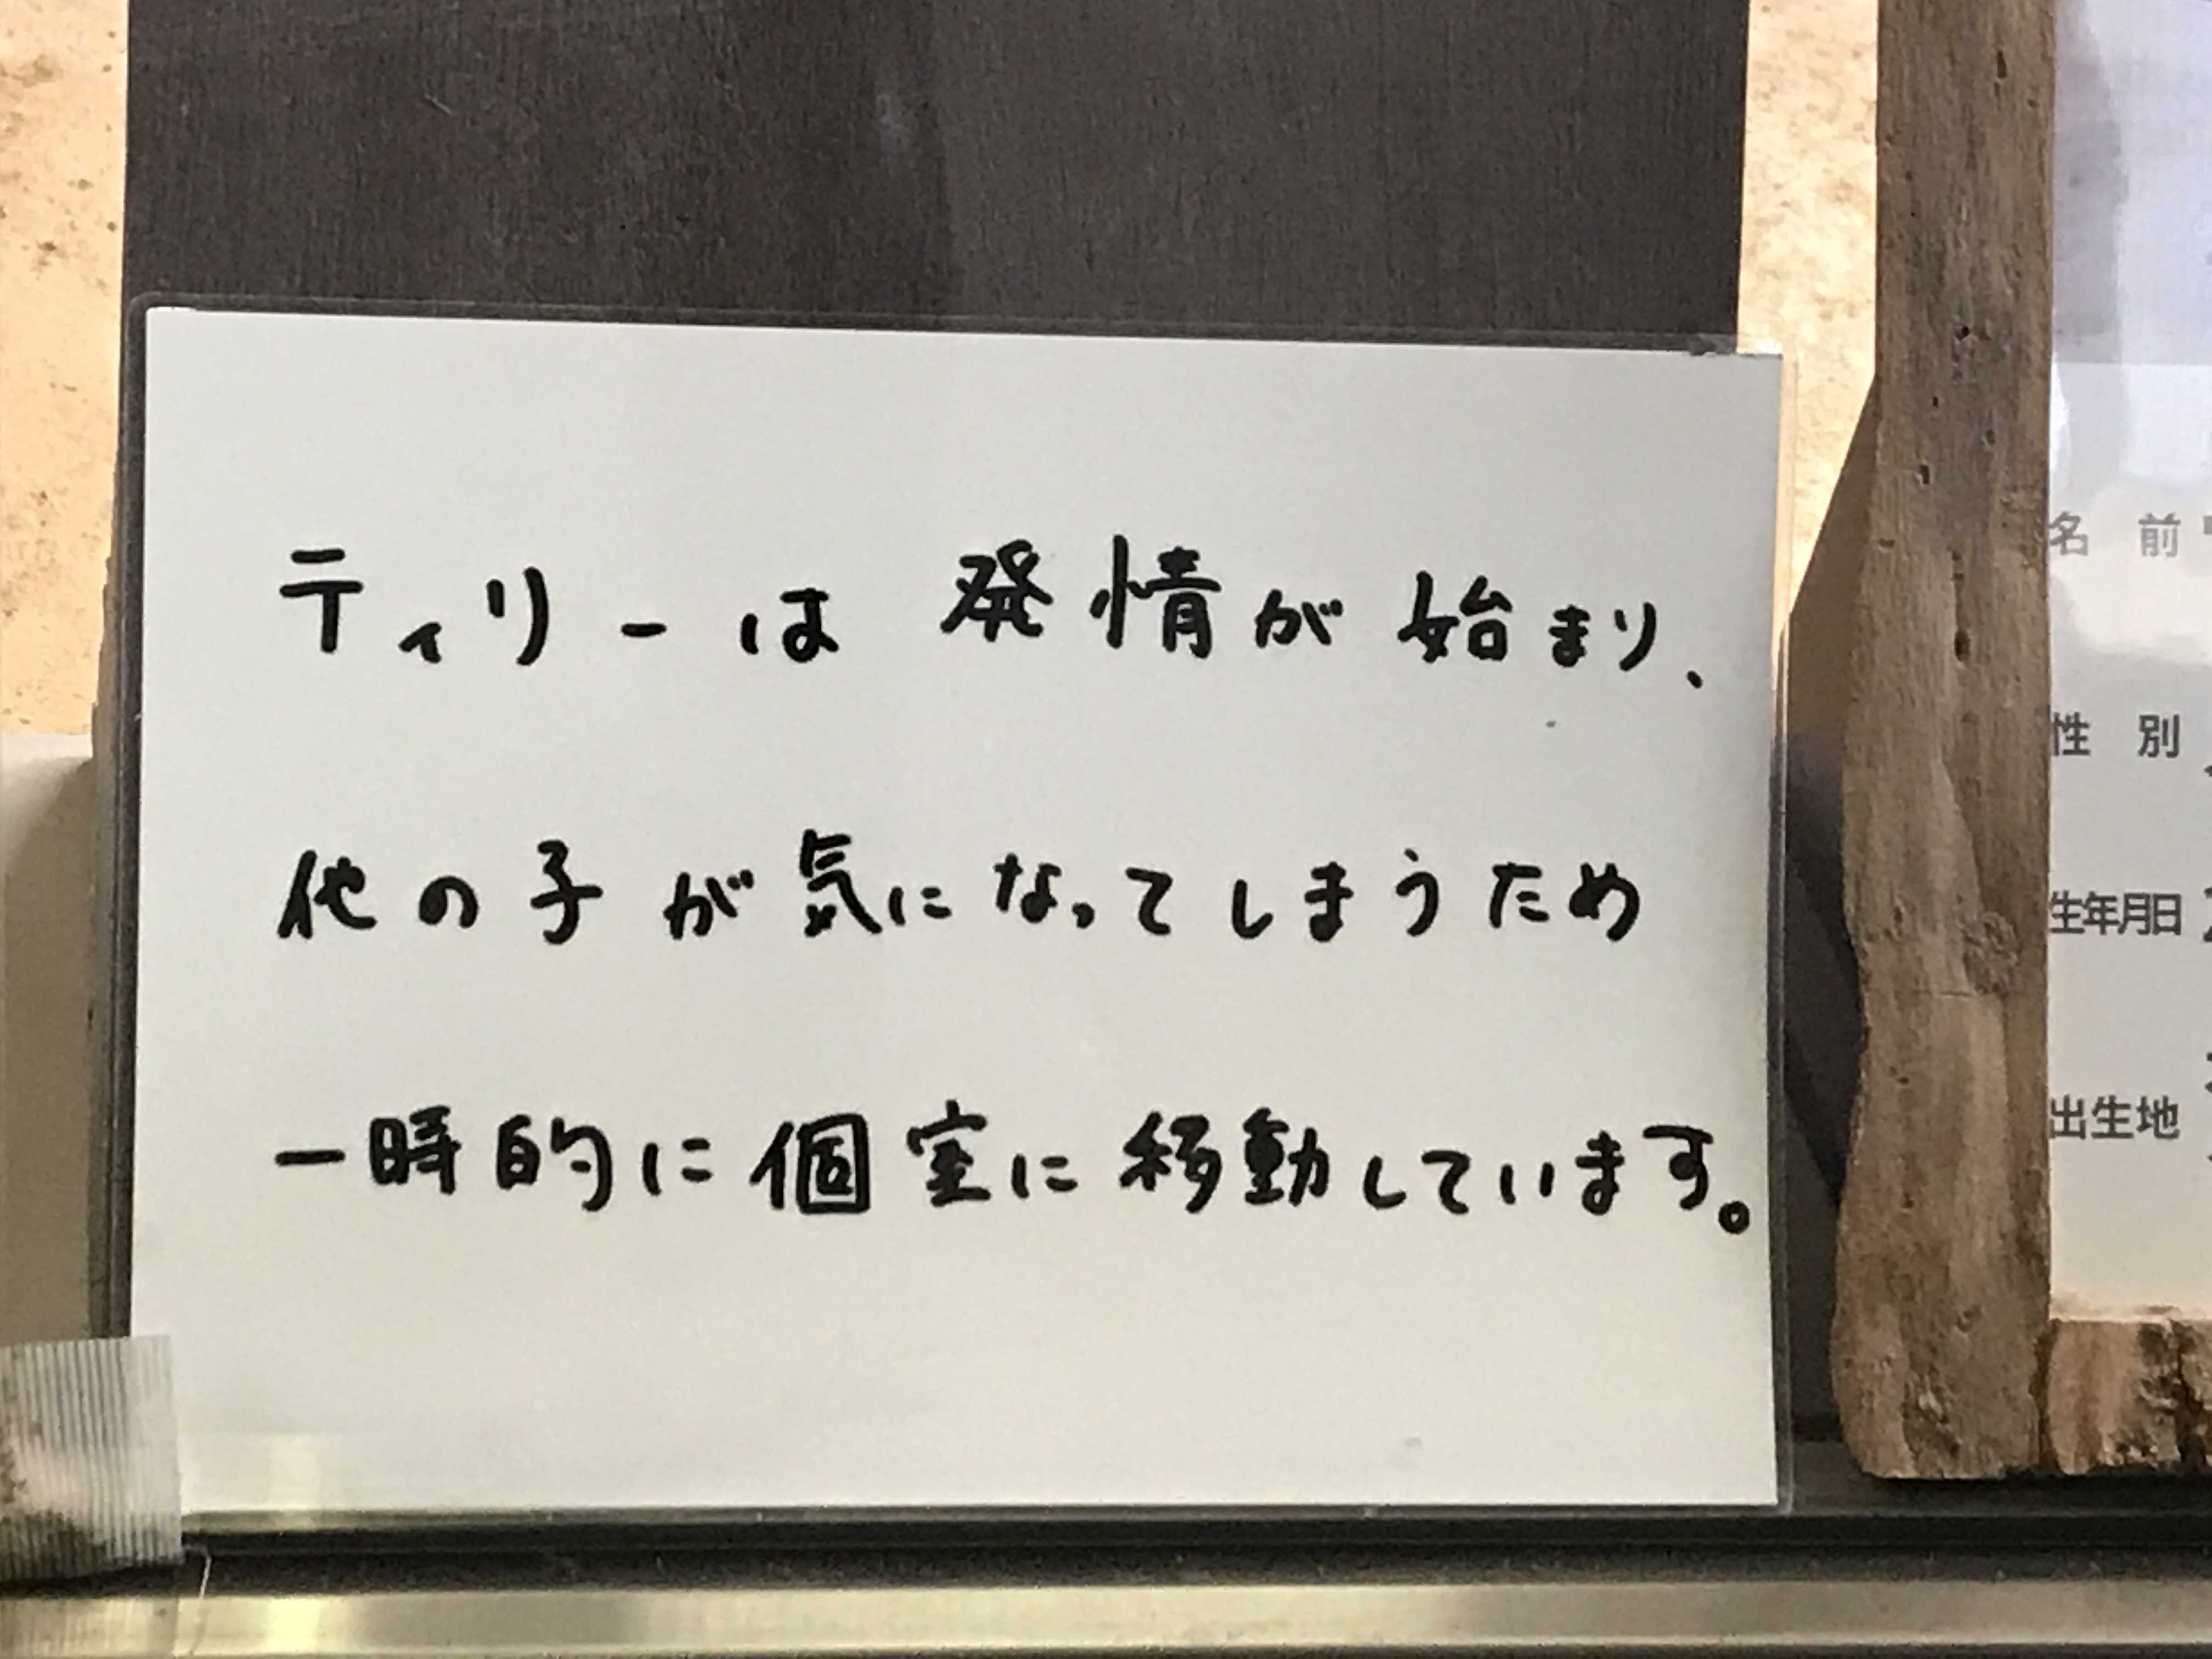 ティリーは発情が始まり、
他の子が気になってしまうため
一時的に個室に移動しています。
名 前
性 別
生年月日
出生地